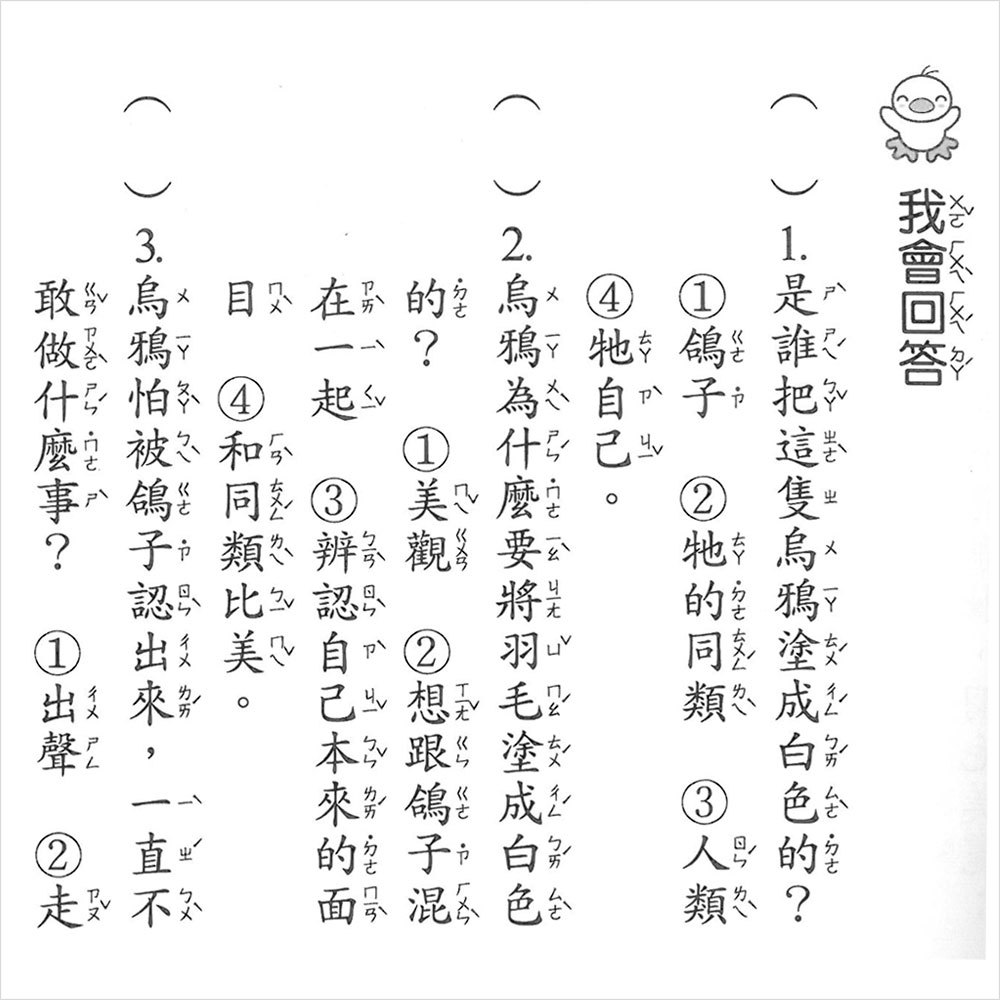 我會回答
（　）1.是誰把這隻烏鴉塗成白色的？
①鴿子　②牠的同類　③人類
④牠自己。
（　）2.烏鴉為什麼要將羽毛塗成白色
的？　①美觀　②想跟鴿子混
在一起　③辨認自己本來的面
目　④和同類比美。
（　）3.烏鴉怕被鴿子認出來，一直不
敢做什麼事？　①出聲　②走